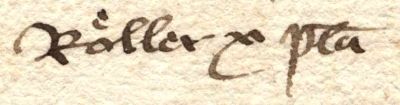 Röller x pła